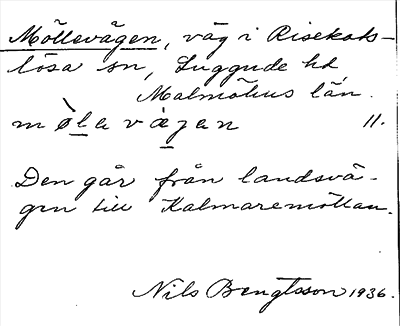 Möllevägen, väg i Risekats-
lösa sn, Luggude hd
Malmöhus län.
mølavæjan 11.
Den går från landsvä-
gen till Kalmaremöllan.
Nils Bengtsson 1936.